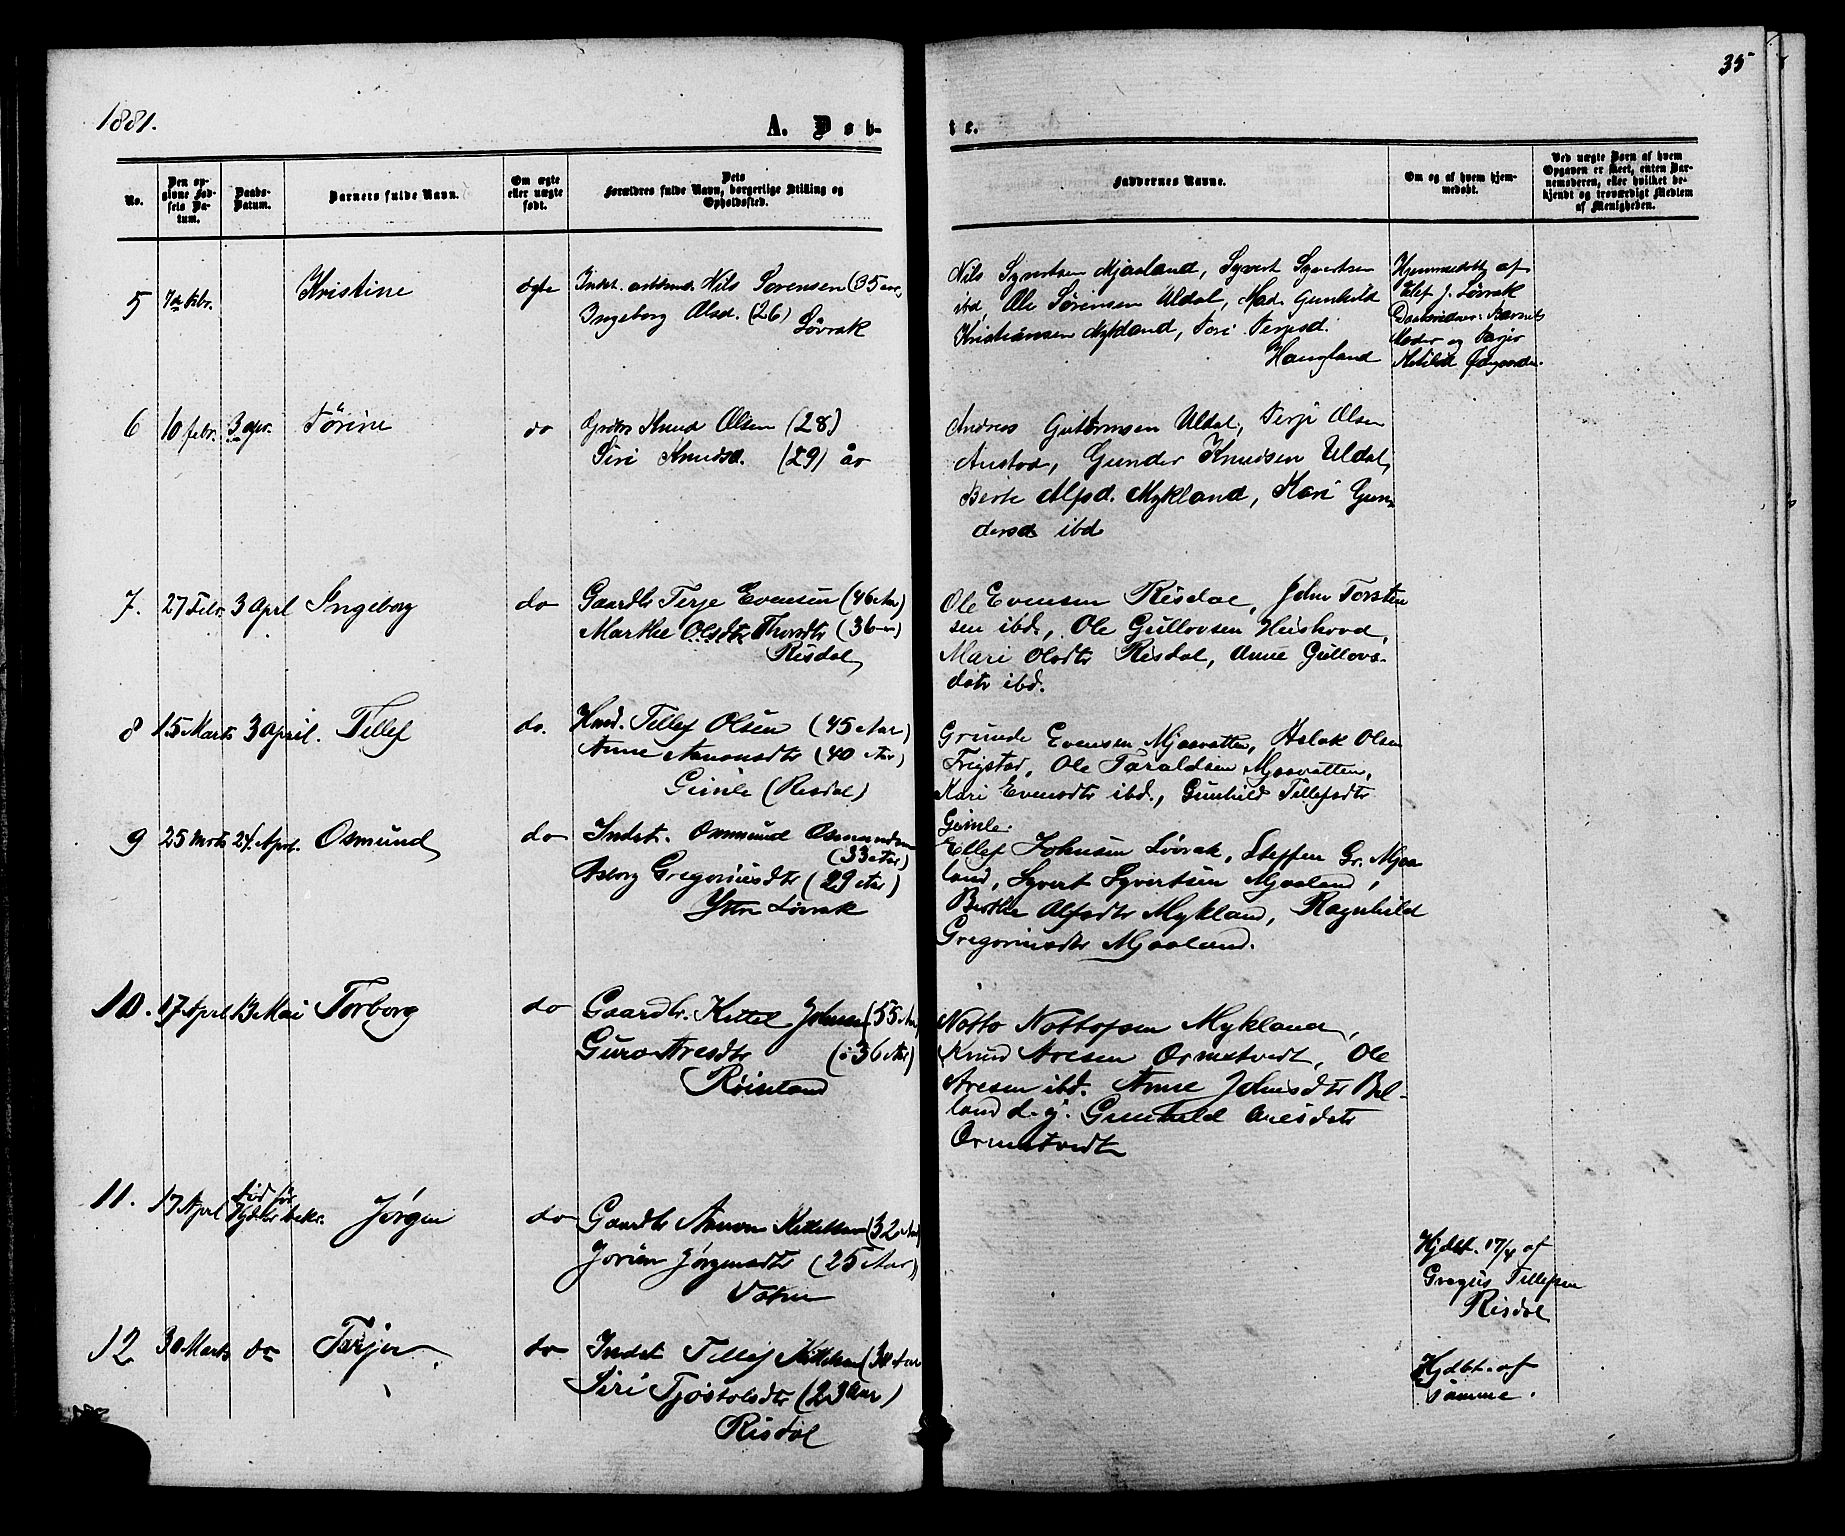 1881.
A. Døb-
te.
35
No.
Den op-
givne Fød-
sels Da-
tum.
Daabs-
Datum.
Barnets fulde Navn.
Om ægte
eller uægte
født.
Dets
Forældres fulde Navn, borgerlige Stilling og
Opholdssted.
Faddernes Navne.
Om og af hvem hjem-
medøbt.
Ved uægte Børn af hvem
Opgaven er skeet, enten Bar-
nemoderen, eller hvilket be-
kjendt og troværdigt Medlem
af Menigheden.
5
Kristine
ægte
Indst. Nils Sørensen (35 aar)
Ingeborg Olsd. (26)
Løvrak
Nils Syvertsen Mjaaland, Syvert Syvertsen
ibd, Ole Sørensen Uldal, Mad. Gunhild
Kristiansen Mykland, Tori Terjesd.
Haugland
Hjemmedøbt af
Ellef J. Løvrak
Barnets
Moder og Tarjer
Ketilsd.
6 10 febr. 3 apr. Tørine
do
Grdbr Knud Olsen (28)
Siri Knudsd. (29) år
Andreas Guttormsen Uldal, Terje Olsen
Austad, Gunder Knudsen Uldal,
Berte Alfsd. Mykland, Kari Gun-
dersd ibd
7. 27 Febr. 3 Aprl Ingeborg
do
Gaardbr Terje Evensen (46 Aar)
Marthe Olsdtr Thorsdtr (36 -)
Risdal
Ole Evensen Risdal, John Torsten
sen ibd., Ole Gullovsen Heishovd,
Mari Olsdtr Risdal, Anne Gullovs-
datr ibd.
8 15 Marts 3 April. Tellef
do.
Hmd. Tellef Olsen (45 Aar)
Anne Aanonsdtr (40 Aar)
Gimle (Risdal)
Grunde Evensen Mjaavatten, Aslak Olsen
Frigstad, Ole Taraldsen Mjaavatten,
Kari Evensdtr ibd., Gunhild Tellefsdtr
Gimle.
9 25 Mrts 24. Aprl. Osmund
do
Indst. Osmund Osmundsen
(33 Aar)
Asborg Gregoriusdtr (29 Aar)
Ytre Løvrak
Ellef Johnsen Løvrak, Steffen Gr. Mjaa-
land, Syvert Syvertsen Mjaaland,
Berthe Alfsdtr Mykland, Ragnhild
Gregoriusdtr Mjaaland.
10. 17 April 13 Mai Torborg
do
Gaardbr. Kittel Johnsen (55 Aar)
Guro Aresdtr (36 Aar)
Røinland
Notto Nottofsen Mykland,
Knud Aresen Ormetvedt, Ole
Aresen ibd. Anne Johnsdtr Bel-
land d. y. Gunhild Aresdatr
Ormetvedt
11. 17 Aprl
død før
Jørgen
do
Gaardbr Aanon Kittelsen (32 Aar)
Jorien Jørgensdtr (25 Aar)
Vatne
Hjdøbt. 17/4 af
Gregus Tellefsen
Risdal
12 30 Marts do Tarjer
do
Indst Tellef Kittelsen (30 Aar
Siri Tjøstolsdtr (23 Aar)
Risdal
Hjdbt. af
samme.